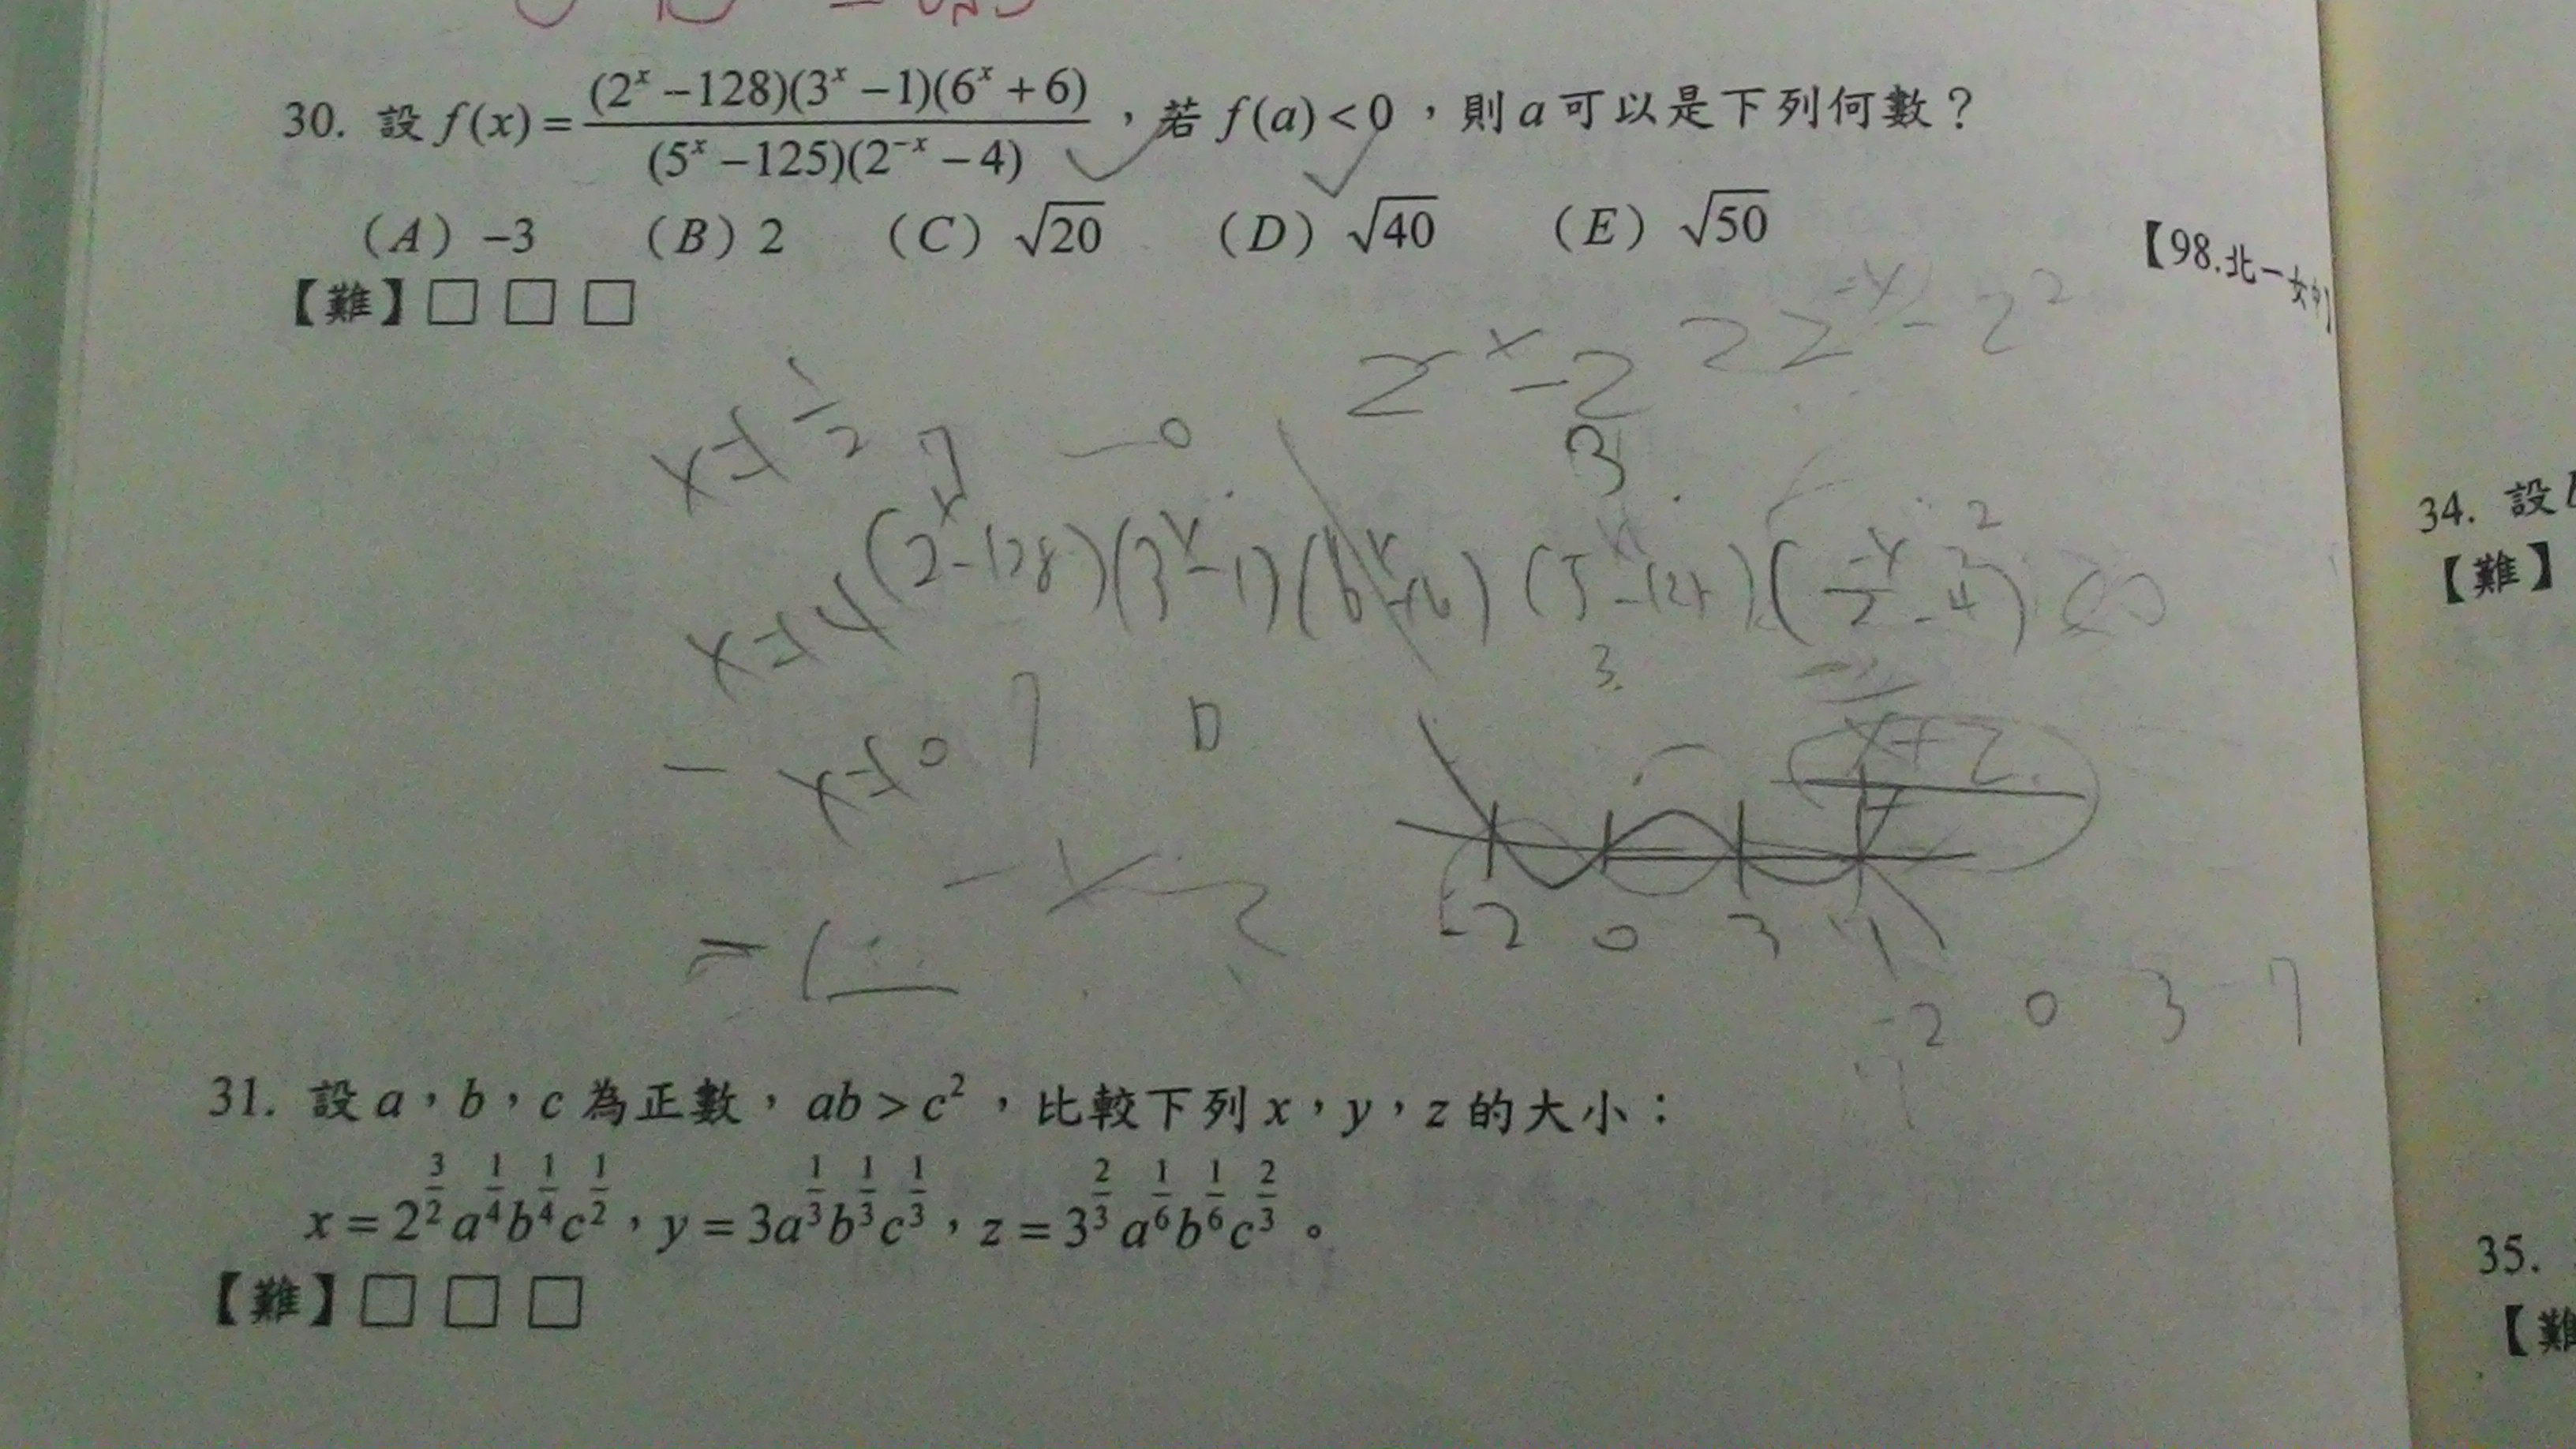 30. 設 f(x) = (2^x − 128)(3^x − 1)(6^x + 6) / (5^x − 125)(2^−x − 4) ，若 f(a) < 0 ，則 a 可以是下列何數？
(A) −3 (B) 2 (C) √20 (D) √40 (E) √50
【98.北一女中】
【難】□ □ □
2^x − 2
3
(2^x − 128)(3^x − 1)(6^x + 6)(5^x − 125)( <0
7 0 3
x+2
−2 0 3 7
−2 0 3 7
31. 設 a，b，c 為正數，ab > c^2 ，比較下列 x，y，z 的大小：
x = 2^(3/2) a^(1/4) b^(1/4) c^(1/2) ，y = 3a^(1/3) b^(1/3) c^(1/3) ，z = 3^(2/3) a^(1/6) b^(1/6) c^(2/3) 。
【難】□ □ □
34. 設
【難】
35.
【難